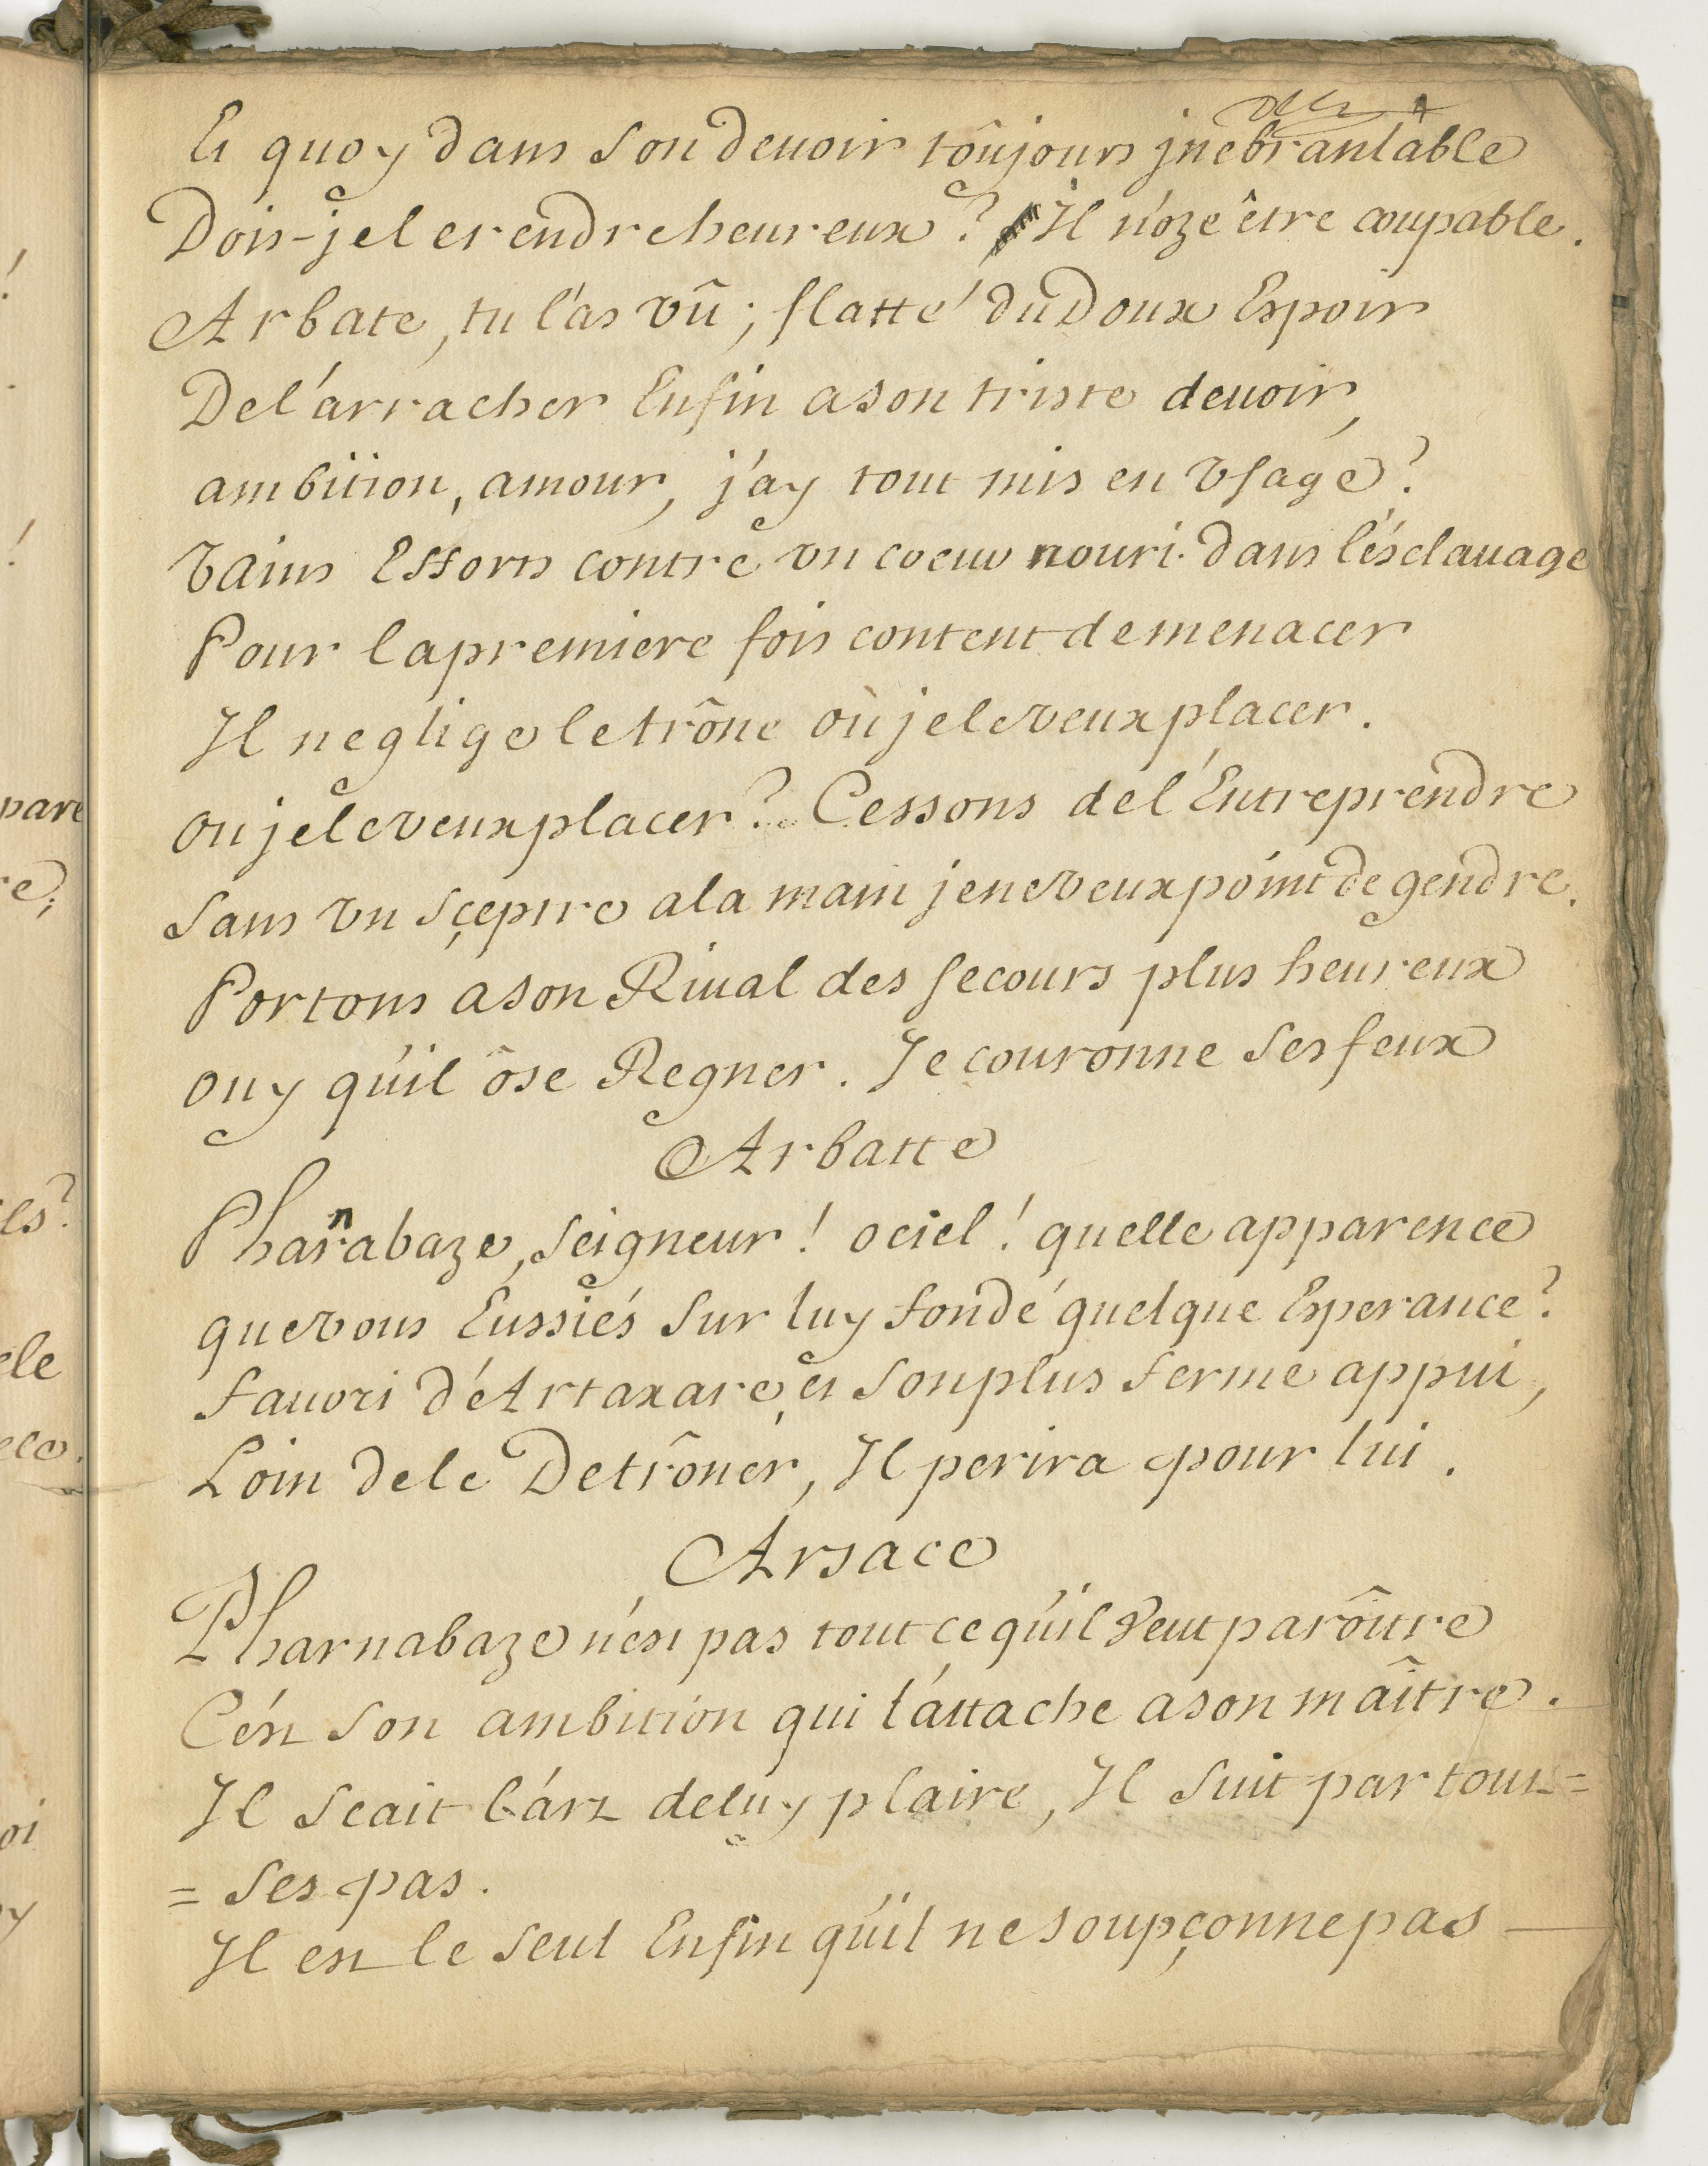 Et quoy dans son devoir toûjours jnebranlable
Dois-je le rendre heureux? Il n'oze être coupable.
Arbate, tu l'as vû; flatté du Doux Espoir
De l'arracher Enfin a son triste devoir,
ambition, amour, j'ay tout mis en vsage?
vains Efforts contre vn coeur nouri dans l'ésclauage
Pour la premiere fois content de menacer
Il neglige le trône où je le veux placer.
ou je le veux placer? Cessons de l'Entreprendre
Sans vn sçeptre a la main je ne veux point de gendre.
Portons a son Riual des secours plus heureux
ouy qu'il ôse Regner. Je couronne ses feux
Arbatte
Pharnabaze, Seigneur! o ciel! quelle apparence
que vous Eussiés Sur luy fondé quelque Esperance?
fauori d'Artaxare, et son plus ferme appui,
Loin de le Detrôner, Il perira pour lui.
Arsace
Pharnabaze n'est pas tout ce qu'il veut parôitre
C'ést Son ambition qui l'attache a son mâitre.
Il Scait l'art de luy plaire, Il Suit par tout=
= Ses pas.
Il est le Seul Enfin qu'il ne soupçonne pas —
pare
e;
ls?
ele
oi
y